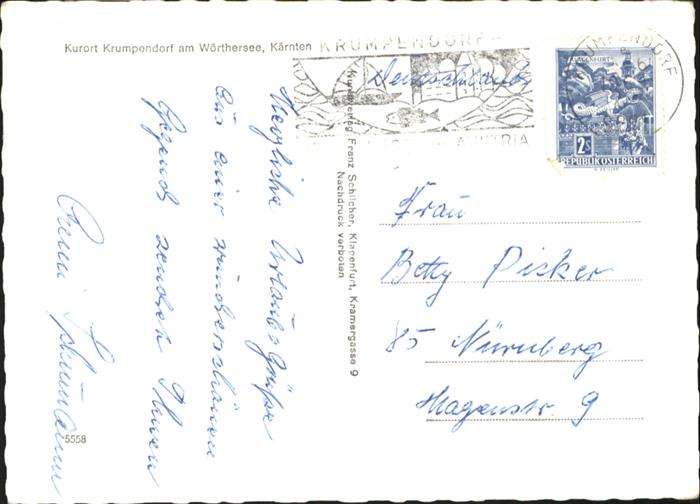 Kurort Krumpendorf am Wörthersee, Kärnten
KRUMPENDORF
Deutschland
AUSTRIA
KRUMPENDORF
KLAGENFURT
2S
REPUBLIK ÖSTERREICH
Herzliche Urlaubsgrüße
aus einer wunderschönen
Gegend senden Ihnen
Kunstverlag Franz Schilcher, Klagenfurt, Kramergasse 9
Nachdruck verboten
Frau
Betty Picker
85 Nürnberg
Hagenstr. 9
5558